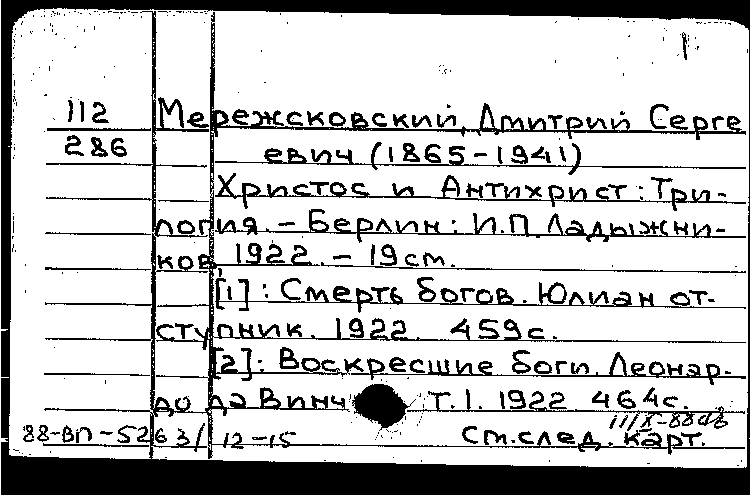 112 Мережсковский, Дмитрий Серге
286 евич (1865-1941)
Христос и Антихрист: Три-
логия. - Берлин: И.П. Ладыжни-
ков, 1922. - 19 см.
[1]: Смерть богов. Юлиан от-
ступник. 1922. 459 с.
[2]: Воскресшие боги. Леонар-
до да Винч Т.1. 1922 464 с.
88-ВП-5263/ 12-15 См. след. карт.